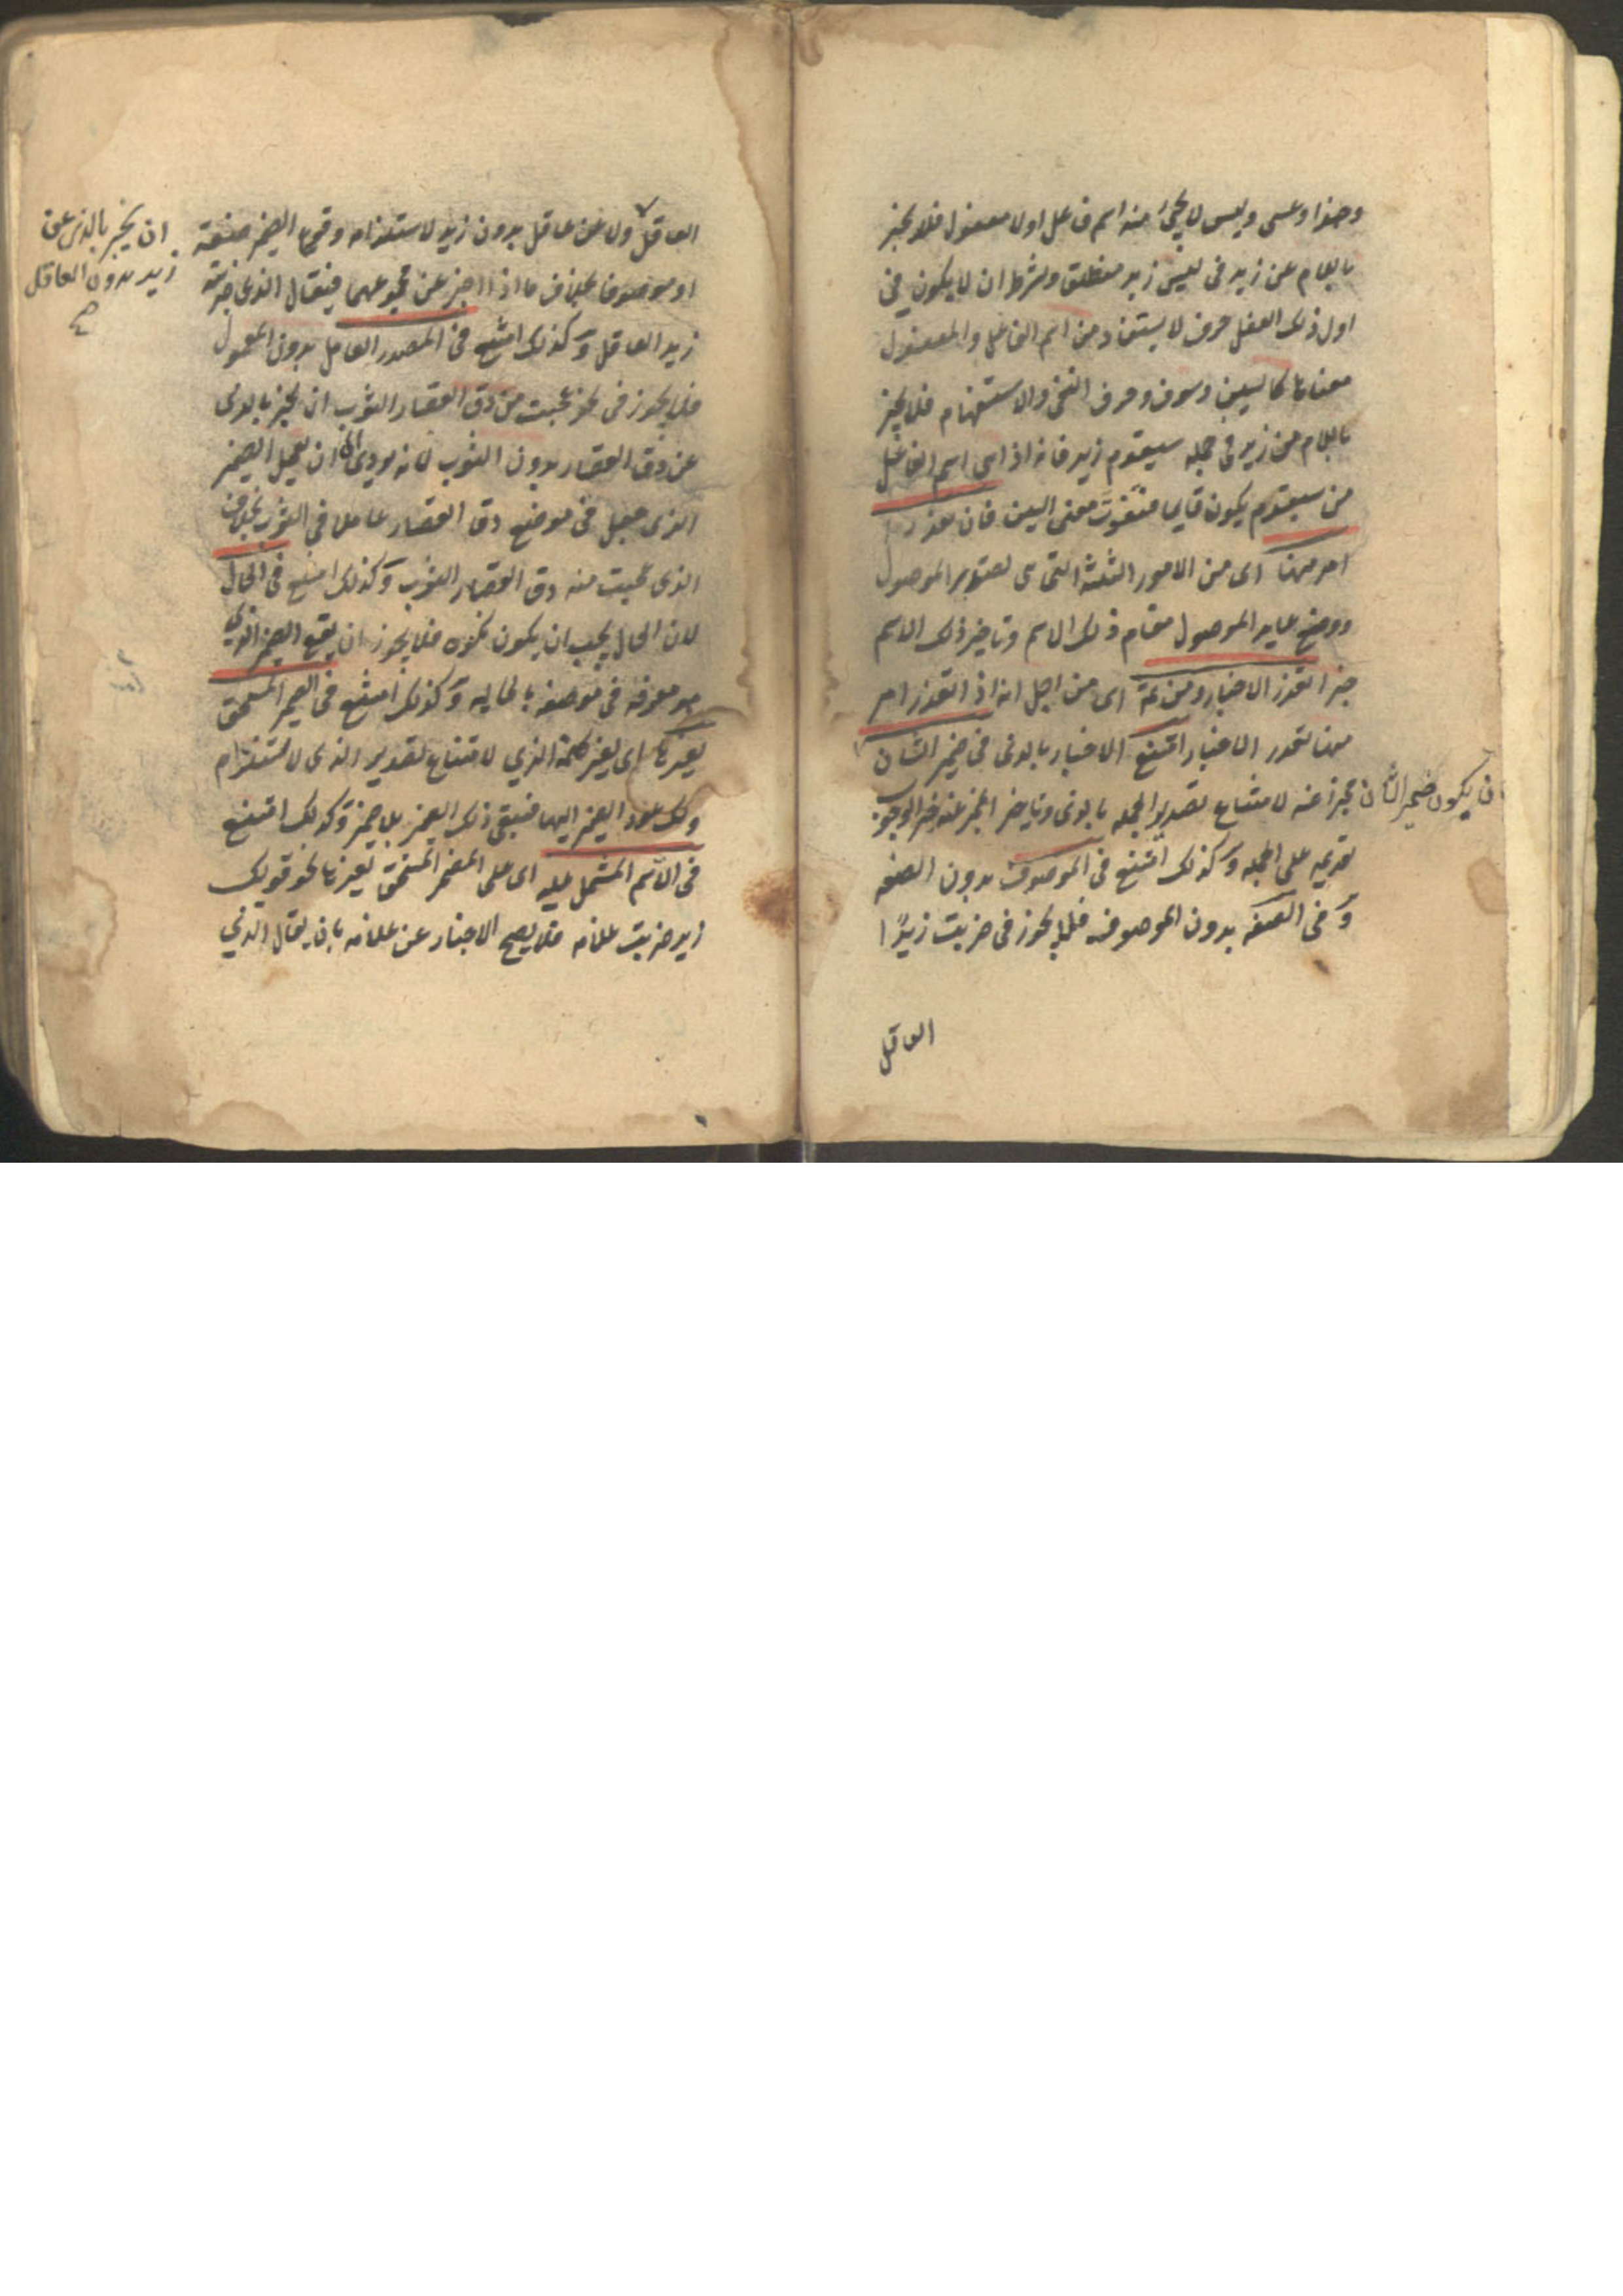 وحبذا وعسى وليس لا يجئ منه اسم فاعل اولا مفعول فلا يخبر
باللام عن زيد في ليس زيد منطلقا وبشرط ان لا يكون في
اول ذلك الفعل حرف لا يستفاد من اسم الفاعل والمفعول
معناها كالسين وسوف وحرف النفي والاستفهام فلا يخبر
باللام عن زيد في جملة سيقوم زيد فانه اذا بنى اسم الفاعل
من سيقوم يكون قايما فتفوت معنى السين فان تعذر
امر منها اى من الامور الثلثة التى هى تصدير الموصول
ووضع عايد الموصول مقام ذلك الاسم وتاخير ذلك الاسم
خبرا تعذر الاخبار ومن ثمة اى من اجل انه اذا تعذر امر
منها تعذر الاخبار امتنع الاخبار بالذى في ضمير الشان
بان يكون ضمير الشان مخبرا عنه لامتناع تصدير الجملة بالذى وتاخير المخبر عنه خبرا لوجوب
تقديمه على الجملة وكذلك امتنع في الموصوف بدون الصفة
وفي الصفة بدون الموصوف فلا يجوز في ضربت زيدا
العاقل
العاقل ولا عن عاقل بدون زيد لاستلزامه وقوع الضمير صفة
ان يخبر بالذى عن
زيد بدون العاقل
صح
او موصوفا بخلاف ما اذا اخبر عن مجموعهما فيقال الذى ضربته
زيد العاقل وكذلك امتنع في المصدر العامل بدون المعمول
فلا يجوز في نحو عجبت من دق القصار الثوب ان يخبر بالذى
عن دق القصار بدون الثوب لانه يودى الى ان يعمل الضمير
الذى جعل في موضع دق القصار عاملا في الثوب بخلاف
الذى عجبت منه دق القصار الثوب وكذلك امتنع في الحال
لان الحال يجب ان يكون نكرة فلا يجوز ان يقع الضمير الذى
هو معرفة في موضعه بالحالية وكذلك امتنع في الضمير المستحق
لغيرها اى لغير كلمة الذي لامتناع تصدير الذى لاستلزام
ذلك عود الضمير اليها فيبقى ذلك الغير بلا ضمير وكذلك امتنع
في الاسم المشتمل عليه اى على الضمير المستحق لغيرها نحو قولك
زيد ضربت غلامه فلا يصح الاخبار عن غلامه بان يقال الذي